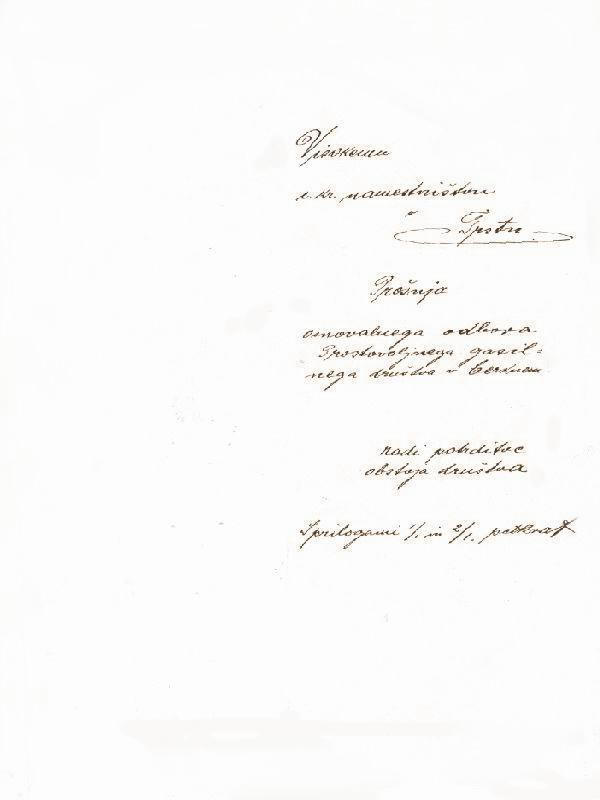 Visokemu
c. kr. namestništvu
v
Trstu.
Prošnja
osnovalnega odbora
Prostovoljnega gasil-
nega društva v Cerknem
radi potrditve
obstoja društva
S prilogami 1/1 in 2/1. petkrat